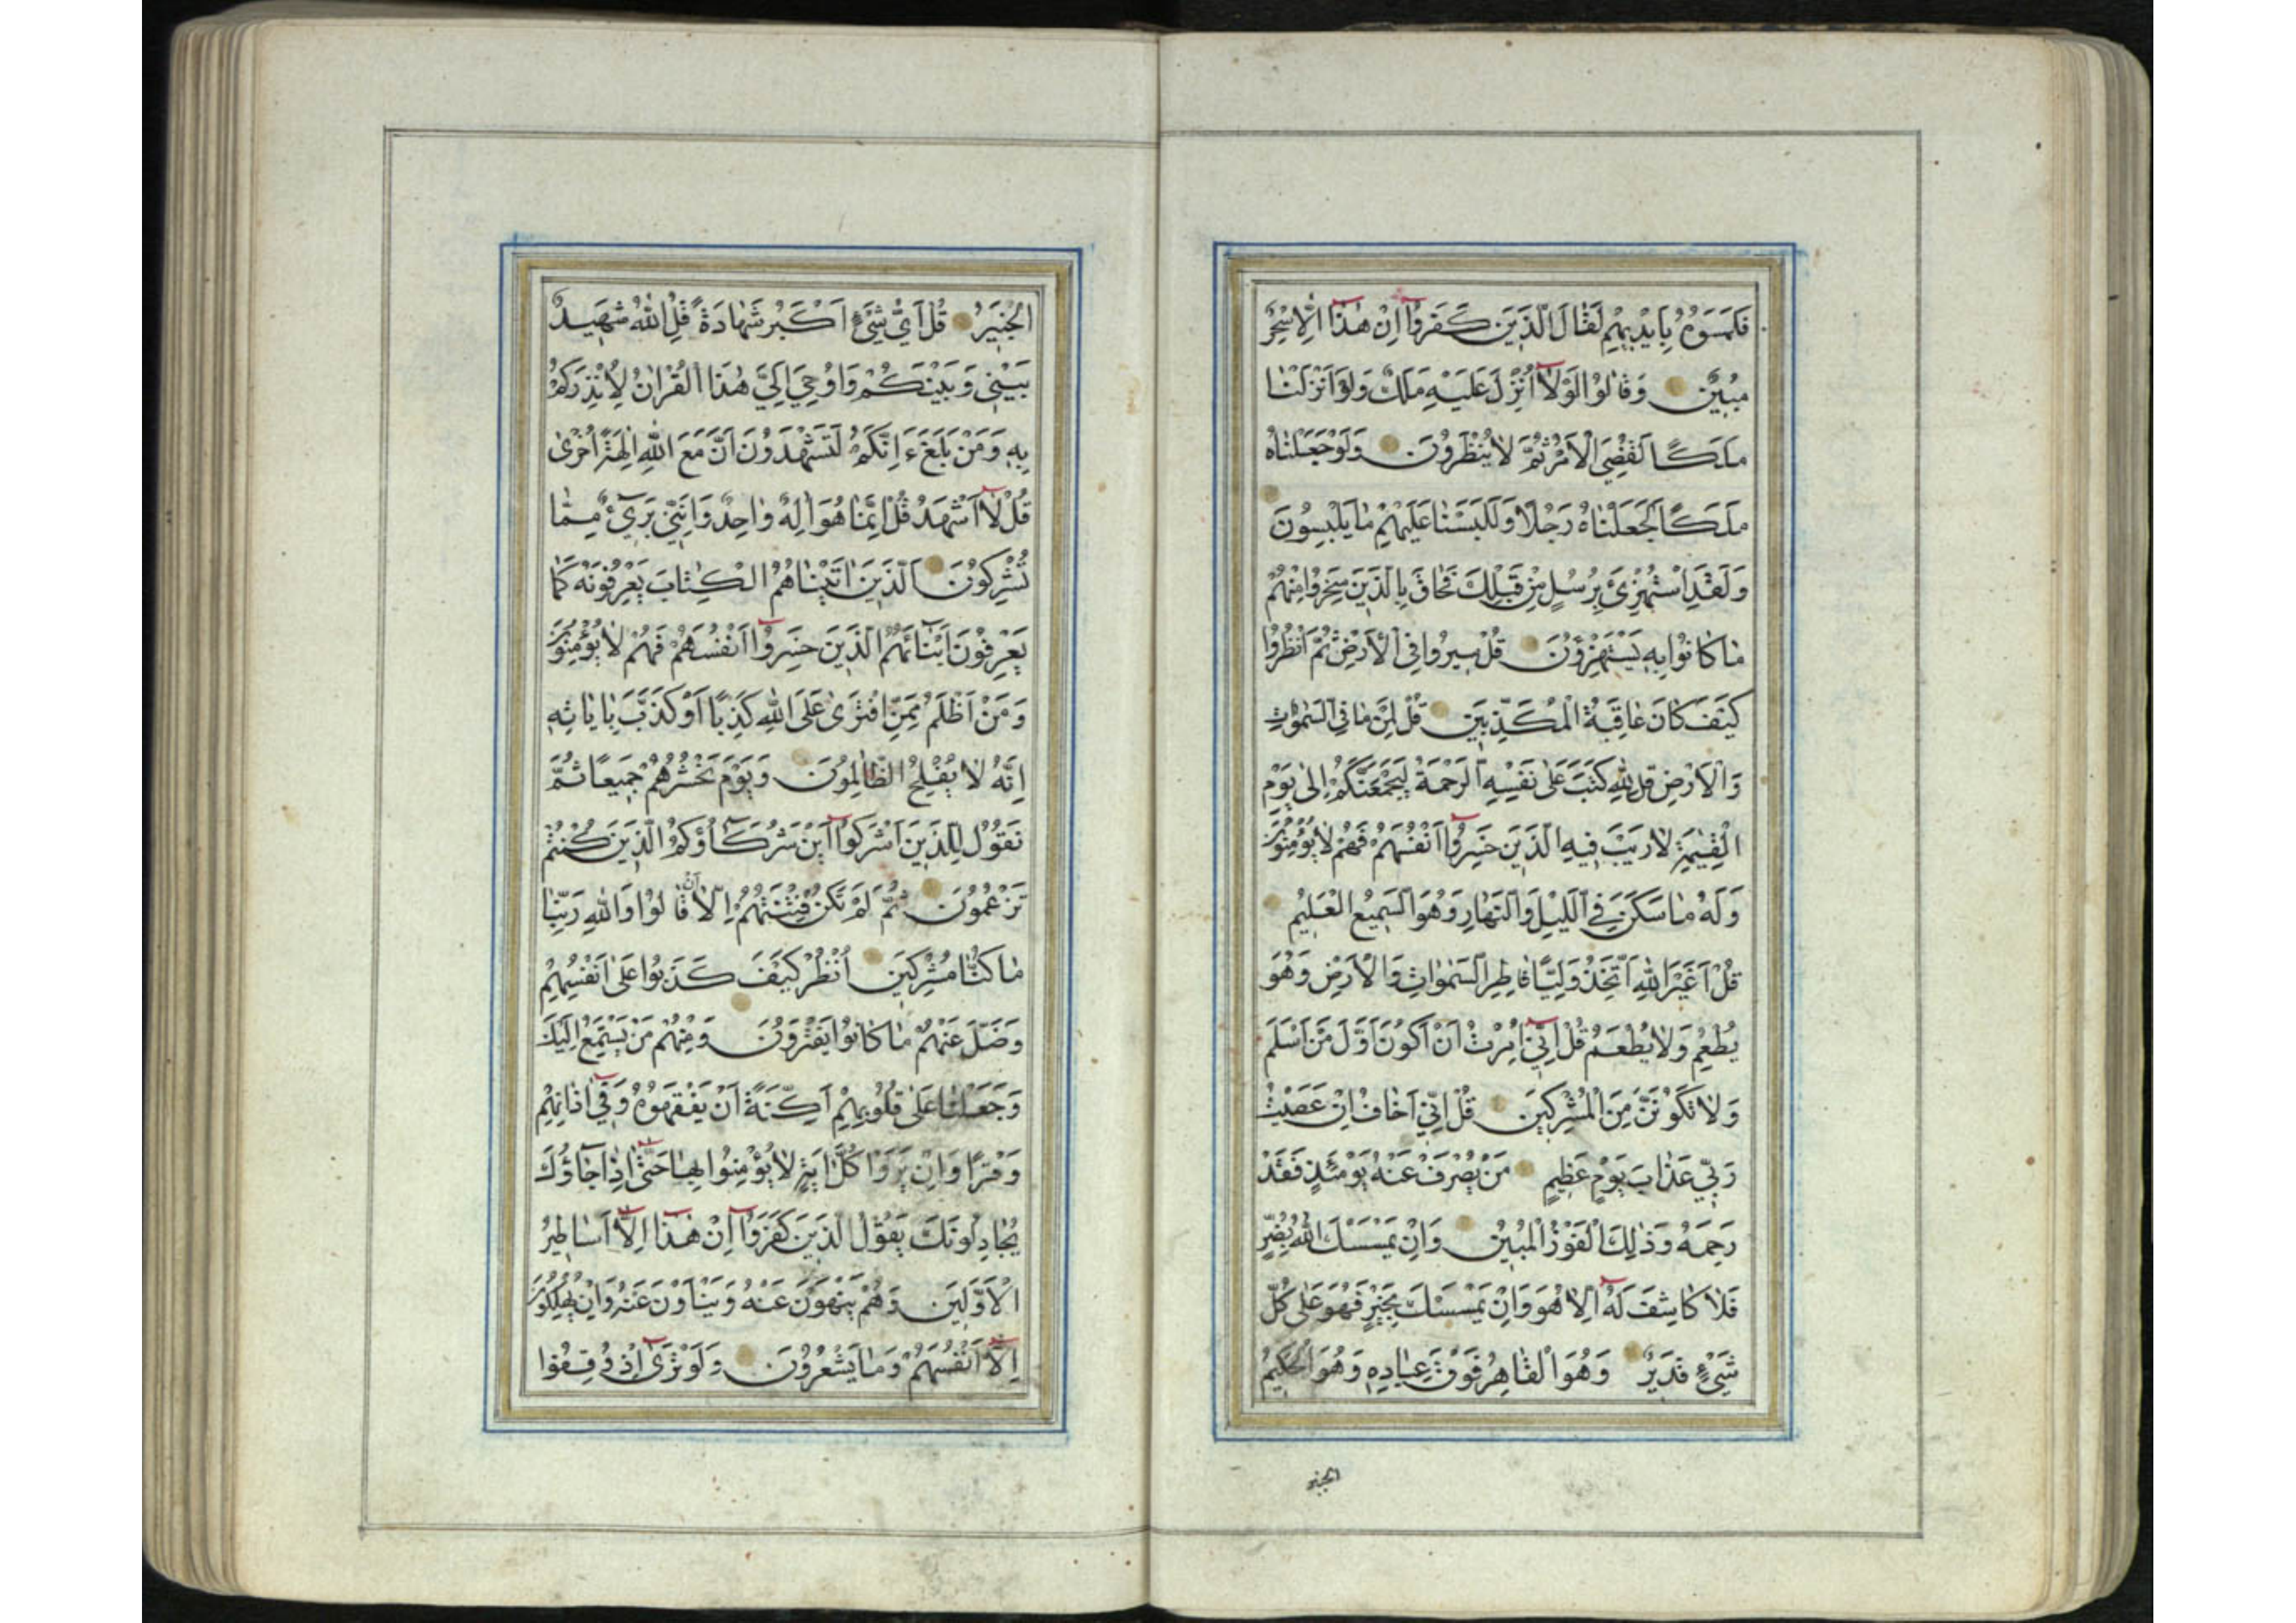 فَلَمَسُوهُ بِاَيْدِيهِمْ لَقَالَ الَّذِينَ كَفَرُوا اِنْ هٰذَا اِلَّا سِحْرٌ
مُبِينٌ وَقَالُوا لَوْلَا اُنْزِلَ عَلَيْهِ مَلَكٌ وَلَوْ اَنْزَلْنَا
مَلَكًا لَقُضِيَ الْاَمْرُ ثُمَّ لَا يُنْظَرُونَ وَلَوْ جَعَلْنَاهُ
مَلَكًا لَجَعَلْنَاهُ رَجُلًا وَلَلَبَسْنَا عَلَيْهِمْ مَا يَلْبِسُونَ
وَلَقَدِ اسْتُهْزِئَ بِرُسُلٍ مِنْ قَبْلِكَ فَحَاقَ بِالَّذِينَ سَخِرُوا مِنْهُمْ
مَا كَانُوا بِهِ يَسْتَهْزِؤُنَ قُلْ سِيرُوا فِي الْاَرْضِ ثُمَّ انْظُرُوا
كَيْفَ كَانَ عَاقِبَةُ الْمُكَذِّبِينَ قُلْ لِمَنْ مَا فِي السَّمٰوَاتِ
وَالْاَرْضِ قُلْ لِلّٰهِ كَتَبَ عَلٰى نَفْسِهِ الرَّحْمَةَ لَيَجْمَعَنَّكُمْ اِلٰى يَوْمِ
الْقِيٰمَةِ لَا رَيْبَ فِيهِ الَّذِينَ خَسِرُوا اَنْفُسَهُمْ فَهُمْ لَا يُؤْمِنُونَ
وَلَهُ مَا سَكَنَ فِي الَّيْلِ وَالنَّهَارِ وَهُوَ السَّمِيعُ الْعَلِيمُ
قُلْ اَغَيْرَ اللّٰهِ اَتَّخِذُ وَلِيًّا فَاطِرِ السَّمٰوَاتِ وَالْاَرْضِ وَهُوَ
يُطْعِمُ وَلَا يُطْعَمُ قُلْ اِنِّي اُمِرْتُ اَنْ اَكُونَ اَوَّلَ مَنْ اَسْلَمَ
وَلَا تَكُونَنَّ مِنَ الْمُشْرِكِينَ قُلْ اِنِّي اَخَافُ اِنْ عَصَيْتُ
رَبِّي عَذَابَ يَوْمٍ عَظِيمٍ مَنْ يُصْرَفْ عَنْهُ يَوْمَئِذٍ فَقَدْ
رَحِمَهُ وَذٰلِكَ الْفَوْزُ الْمُبِينُ وَاِنْ يَمْسَسْكَ اللّٰهُ بِضُرٍّ
فَلَا كَاشِفَ لَهُ اِلَّا هُوَ وَاِنْ يَمْسَسْكَ بِخَيْرٍ فَهُوَ عَلٰى كُلِّ
شَيْءٍ قَدِيرٌ وَهُوَ الْقَاهِرُ فَوْقَ عِبَادِهِ وَهُوَ الْحَكِيمُ
الخبير
الْخَبِيرُ قُلْ اَيُّ شَيْءٍ اَكْبَرُ شَهَادَةً قُلِ اللّٰهُ شَهِيدٌ
بَيْنِي وَبَيْنَكُمْ وَاُوحِيَ اِلَيَّ هٰذَا الْقُرْاٰنُ لِاُنْذِرَكُمْ
بِهِ وَمَنْ بَلَغَ ءَاِنَّكُمْ لَتَشْهَدُونَ اَنَّ مَعَ اللّٰهِ اٰلِهَةً اُخْرٰى
قُلْ لَا اَشْهَدُ قُلْ اِنَّمَا هُوَ اِلٰهٌ وَاحِدٌ وَاِنَّنِي بَرِيءٌ مِمَّا
تُشْرِكُونَ اَلَّذِينَ اٰتَيْنَاهُمُ الْكِتَابَ يَعْرِفُونَهُ كَمَا
يَعْرِفُونَ اَبْنَائَهُمُ الَّذِينَ خَسِرُوا اَنْفُسَهُمْ فَهُمْ لَا يُؤْمِنُونَ
وَمَنْ اَظْلَمُ مِمَّنِ افْتَرٰى عَلَى اللّٰهِ كَذِبًا اَوْ كَذَّبَ بِاٰيَاتِهِ
اِنَّهُ لَا يُفْلِحُ الظَّالِمُونَ وَيَوْمَ نَحْشُرُهُمْ جَمِيعًا ثُمَّ
نَقُولُ لِلَّذِينَ اَشْرَكُوا اَيْنَ شُرَكَاؤُكُمُ الَّذِينَ كُنْتُمْ
تَزْعُمُونَ ثُمَّ لَمْ تَكُنْ فِتْنَتُهُمْ اِلَّا اَنْ قَالُوا وَاللّٰهِ رَبِّنَا
مَا كُنَّا مُشْرِكِينَ اُنْظُرْ كَيْفَ كَذَبُوا عَلٰى اَنْفُسِهِمْ
وَضَلَّ عَنْهُمْ مَا كَانُوا يَفْتَرُونَ وَمِنْهُمْ مَنْ يَسْتَمِعُ اِلَيْكَ
وَجَعَلْنَا عَلٰى قُلُوبِهِمْ اَكِنَّةً اَنْ يَفْقَهُوهُ وَفِي اٰذَانِهِمْ
وَقْرًا وَاِنْ يَرَوْا كُلَّ اٰيَةٍ لَا يُؤْمِنُوا بِهَا حَتّٰى اِذَا جَاؤُكَ
يُجَادِلُونَكَ يَقُولُ الَّذِينَ كَفَرُوا اِنْ هٰذَا اِلَّا اَسَاطِيرُ
الْاَوَّلِينَ وَهُمْ يَنْهَوْنَ عَنْهُ وَيَنْاَوْنَ عَنْهُ وَاِنْ يُهْلِكُونَ
اِلَّا اَنْفُسَهُمْ وَمَا يَشْعُرُونَ وَلَوْ تَرٰى اِذْ وُقِفُوا